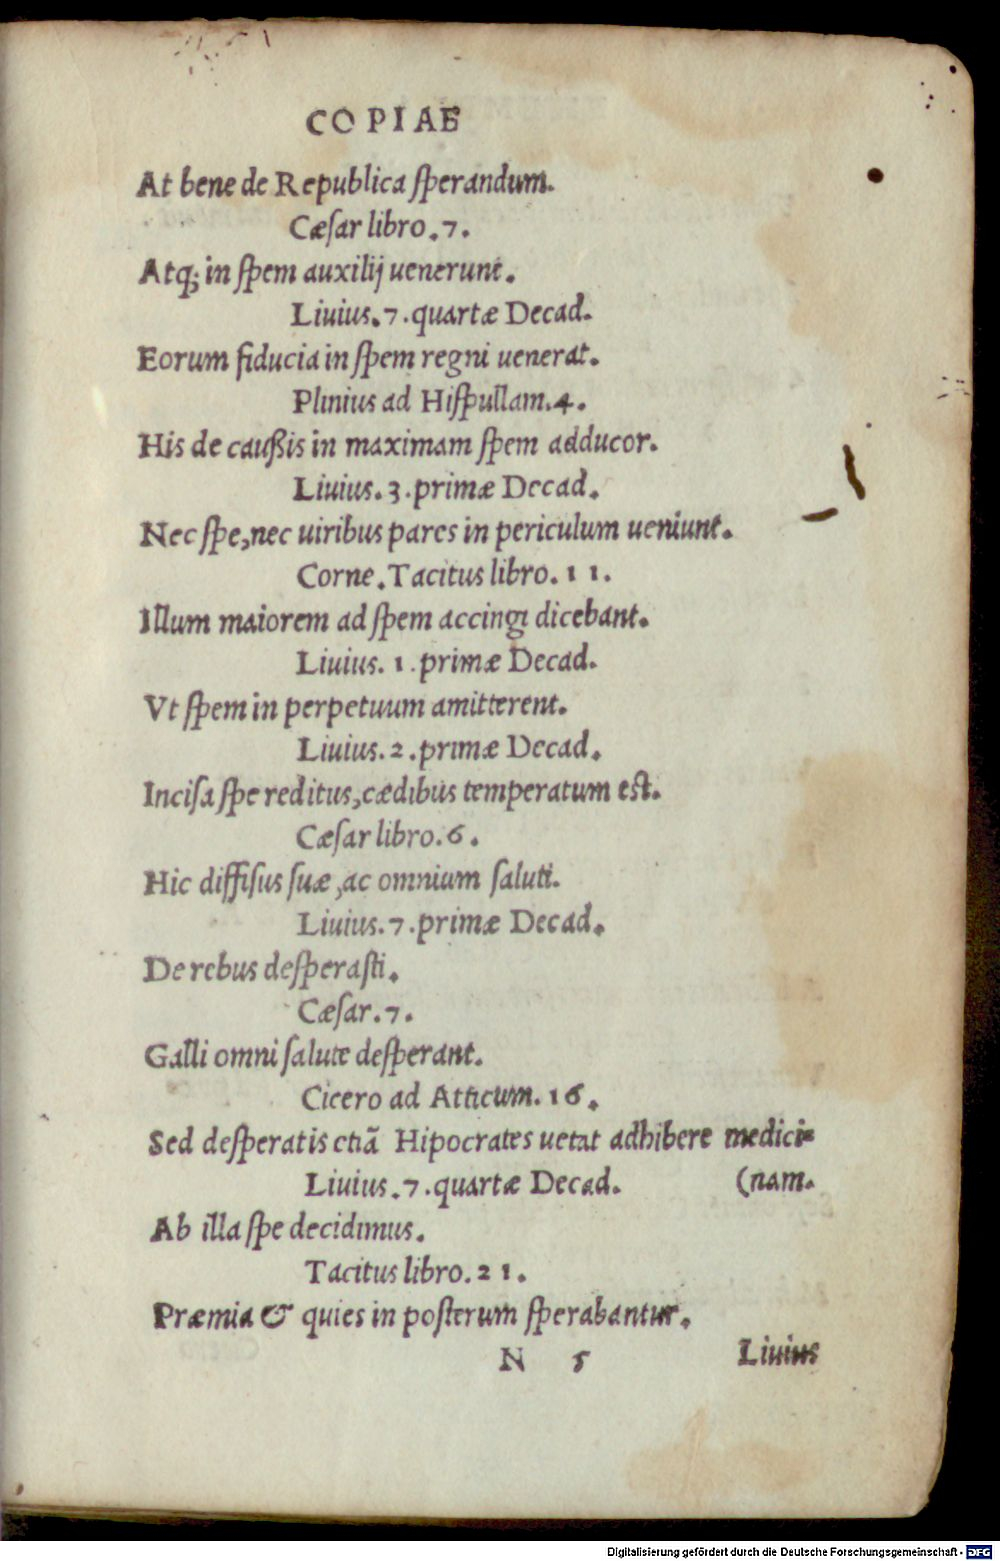 COPIAE
At bene de Republica ſperandum.
Cæſar libro.7.
Atq; in ſpem auxilij uenerunt.
Liuius.7.quartæ Decad.
Eorum fiducia in ſpem regni uenerat.
Plinius ad Hiſpullam.4.
His de cauſsis in maximam ſpem adducor.
Liuius.3.primæ Decad.
Nec ſpe,nec uiribus pares in periculum ueniunt.
Corne.Tacitus libro.11.
Illum maiorem ad ſpem accingi dicebant.
Liuius.1.primæ Decad.
Vt ſpem in perpetuum amitterent.
Liuius.2.primæ Decad.
Inciſa ſpe reditus,cædibus temperatum est.
Cæſar libro.6.
Hic diffiſus ſuæ,ac omnium ſaluti.
Liuius.7.primæ Decad.
De rebus deſperaſti.
Cæſar.7.
Galli omni ſalute deſperant.
Cicero ad Atticum.16.
Sed deſperatis etiã Hipocrates uetat adhibere medici=
Liuius.7.quartæ Decad. (nam.
Ab illa ſpe decidimus.
Tacitus libro.21.
Præmia & quies in poſterum ſperabantur.
N 5 Liuius
Digitalisierung gefördert durch die Deutsche Forschungsgemeinschaft - DFG